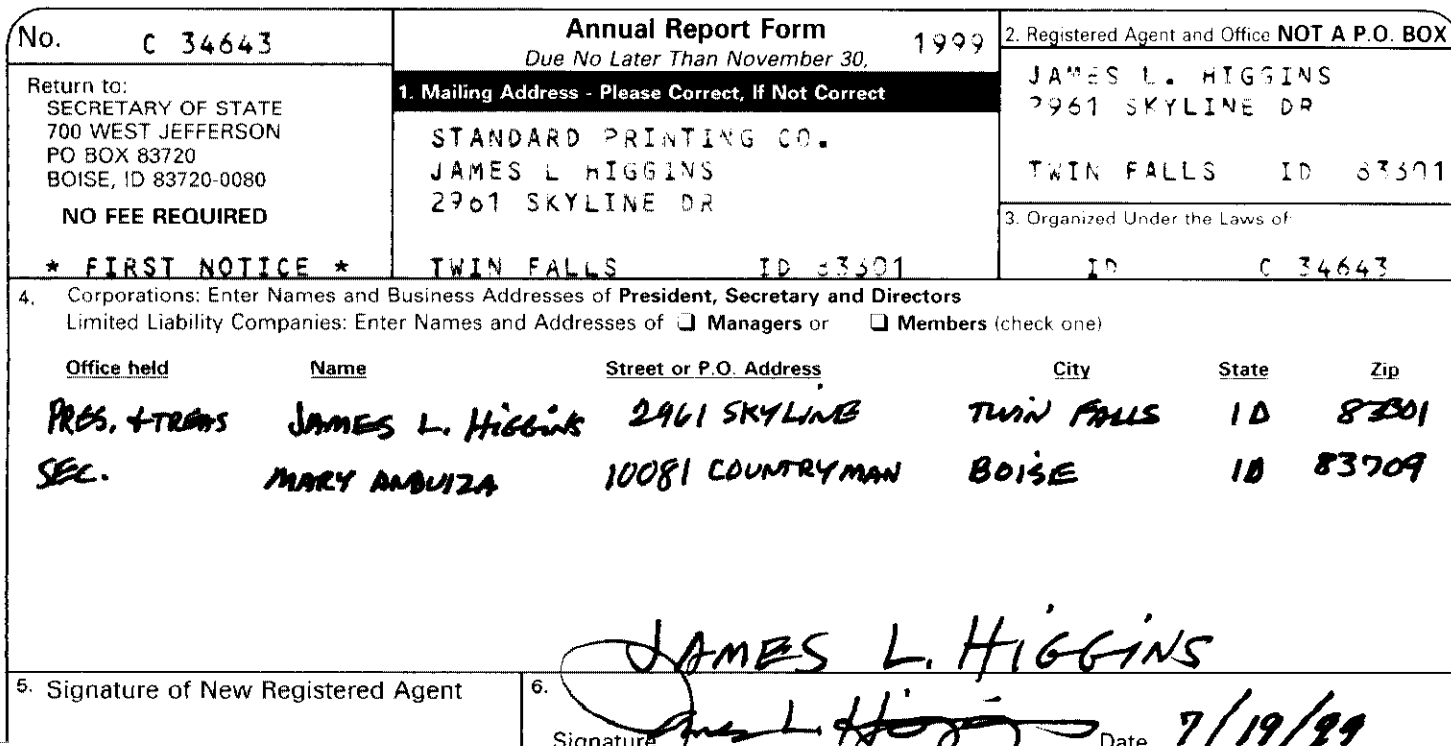 No. C 34643
Return to:
SECRETARY OF STATE
700 WEST JEFFERSON
PO BOX 83720
BOISE, ID 83720-0080
NO FEE REQUIRED
* FIRST NOTICE *
Annual Report Form 1999
Due No Later Than November 30,
1. Mailing Address - Please Correct, If Not Correct
STANDARD PRINTING CO.
JAMES L HIGGINS
2961 SKYLINE DR
TWIN FALLS ID 83301
2. Registered Agent and Office NOT A P.O. BOX
JAMES L. HIGGINS
2961 SKYLINE DR
TWIN FALLS ID 83301
3. Organized Under the Laws of:
ID C 34643
4. Corporations: Enter Names and Business Addresses of President, Secretary and Directors
Limited Liability Companies: Enter Names and Addresses of ❑ Managers or ❑ Members (check one)
Office held Name Street or P.O. Address City State Zip
PRES. + TREAS JAMES L. HIGGINS 2961 SKYLINE TWIN FALLS ID 83301
SEC. MARY ANBUIZA 10081 COUNTRYMAN BOISE ID 83709
JAMES L. HIGGINS
5. Signature of New Registered Agent
6.
Signature James L. Higgins Date 7/19/99